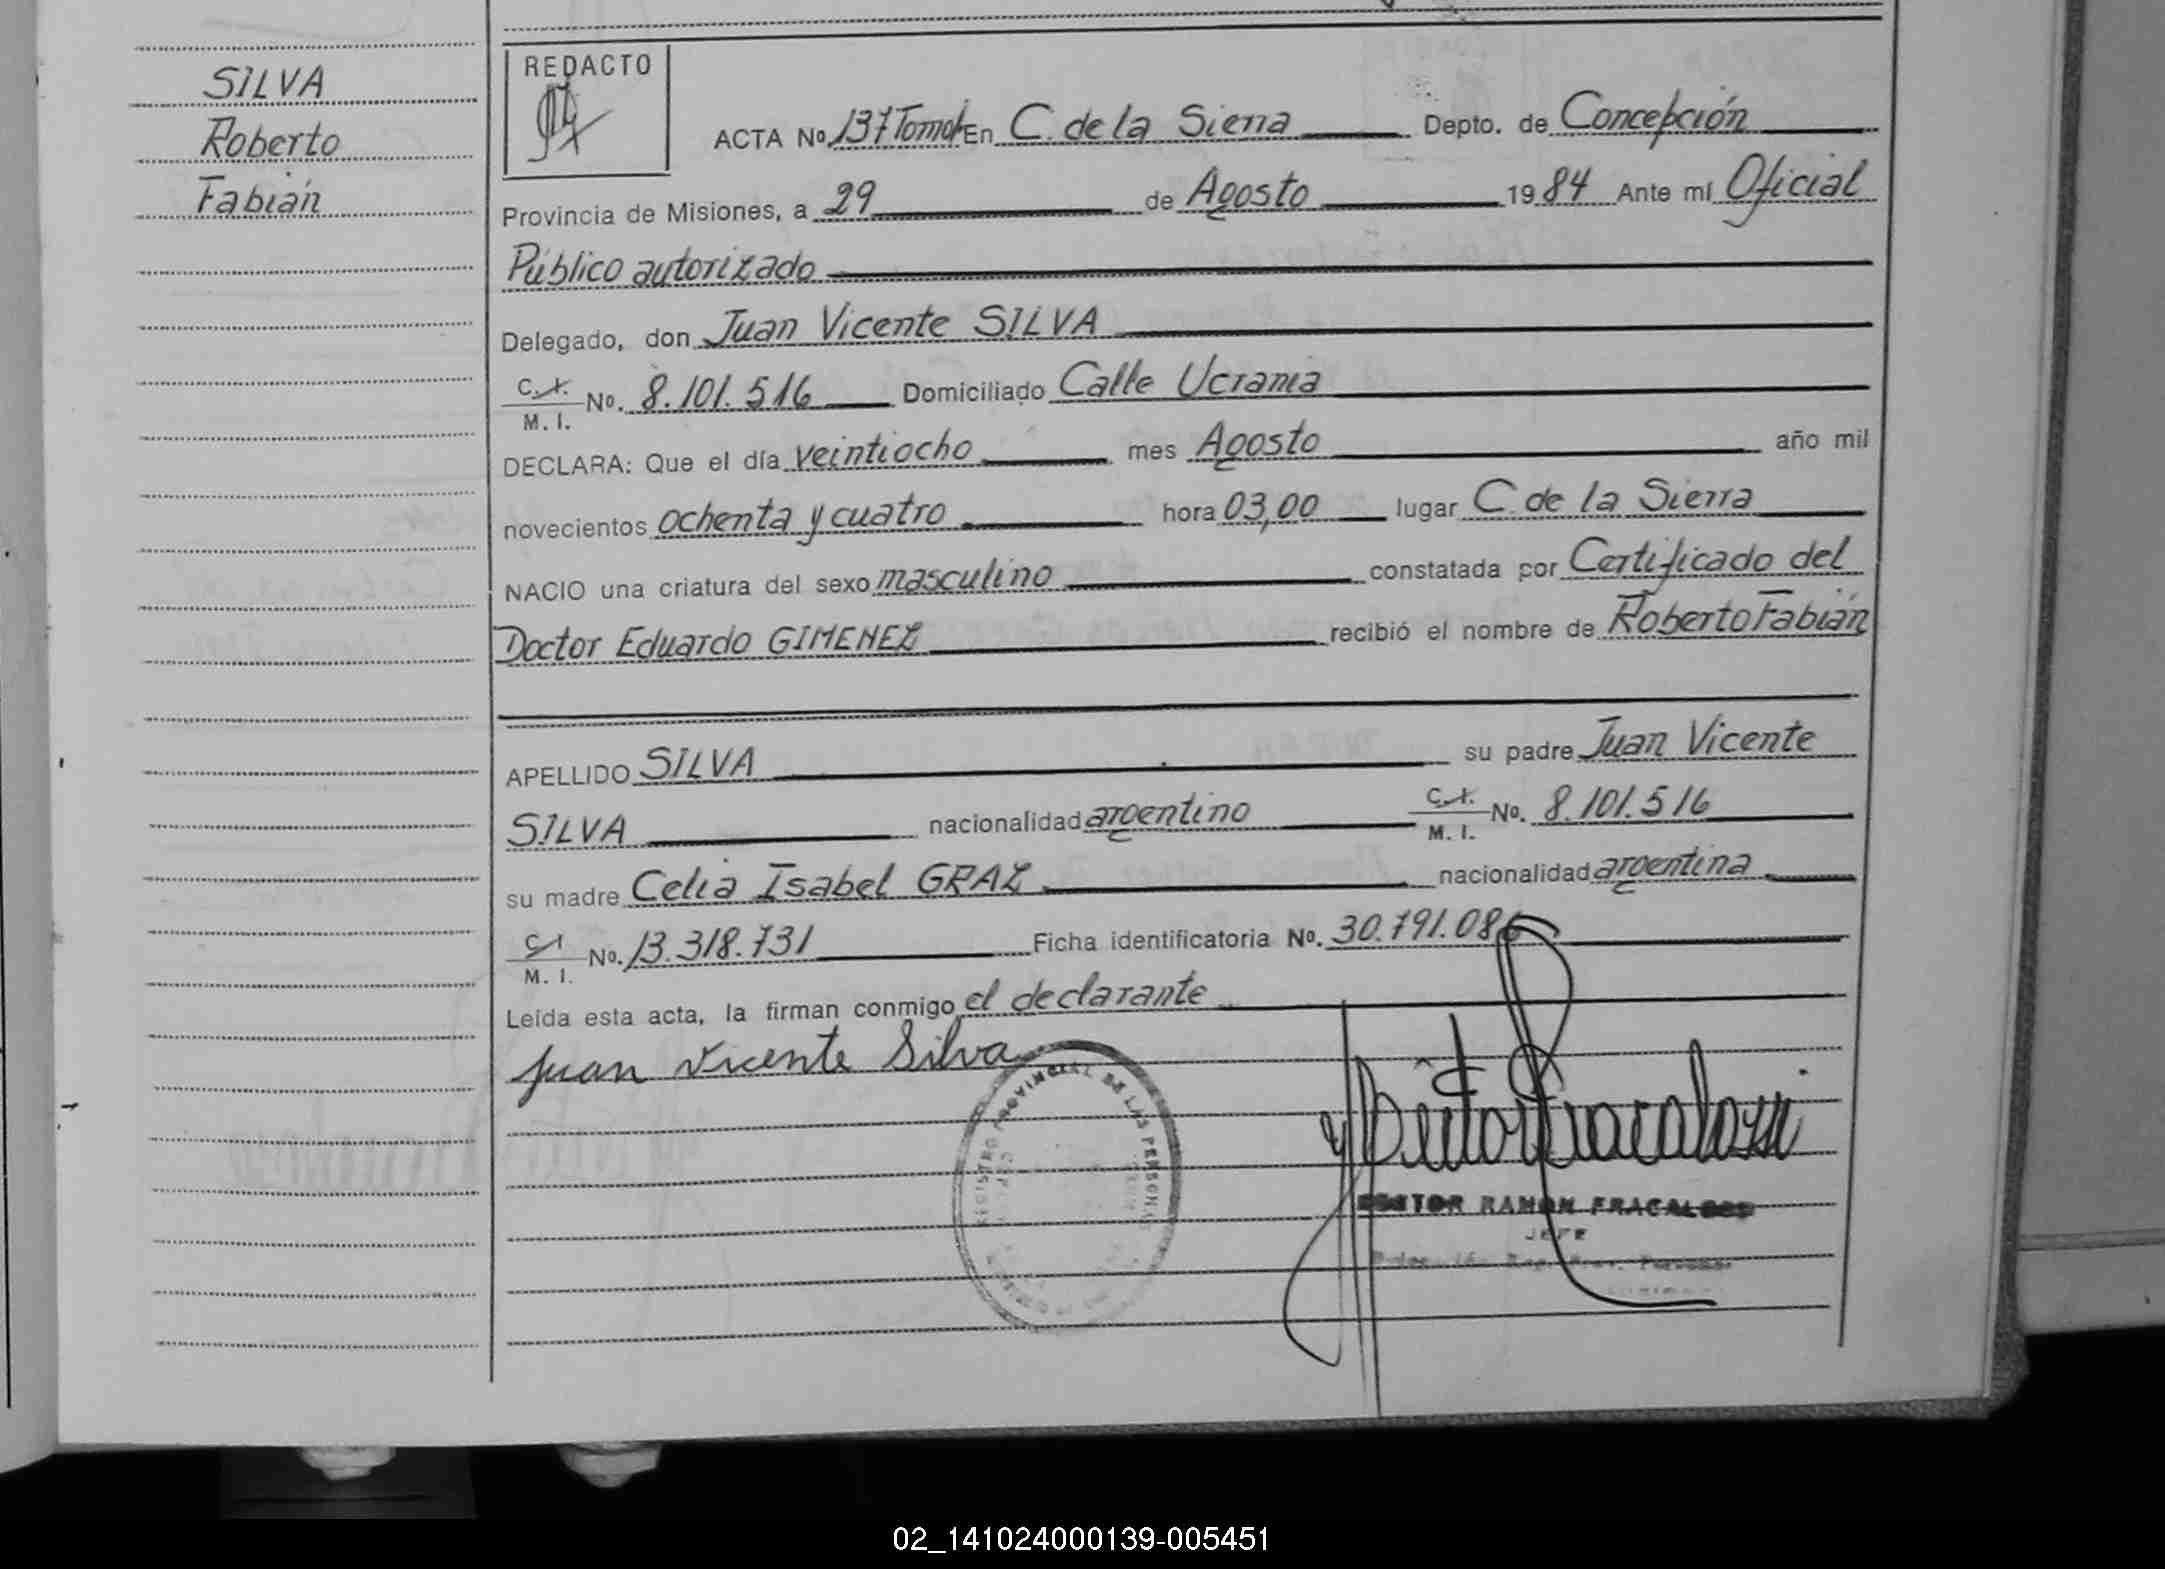 SILVA
Roberto
Fabián
REDACTO
ACTA Nº 137 Tomo I En C. de la Sierra Depto. de Concepción
Provincia de Misiones, a 29 de Agosto 1984 Ante mí Oficial
Público autorizado
Delegado, don Juan Vicente SILVA
C.I. M. I. No. 8.101.516 Domiciliado Calle Ucrania
DECLARA: Que el día veintiocho mes Agosto año mil
novecientos ochenta y cuatro hora 03,00 lugar C. de la Sierra
NACIO una criatura del sexo masculino constatada por Certificado del
Doctor Eduardo GIMENEZ recibió el nombre de Roberto Fabián
APELLIDO SILVA su padre Juan Vicente
SILVA nacionalidad argentino C.I. M. I. No. 8.101.516
su madre Celia Isabel GRAZ nacionalidad argentina
C.I. M. I. No. 13.318.731 Ficha identificatoria Nº. 30.791.086
Leída esta acta, la firman conmigo el declarante
Juan Vicente Silva
REGISTRO PROVINCIAL DE LAS PERSONAS
RAMON FRACALOSSI
JEFE
02_141024000139-005451